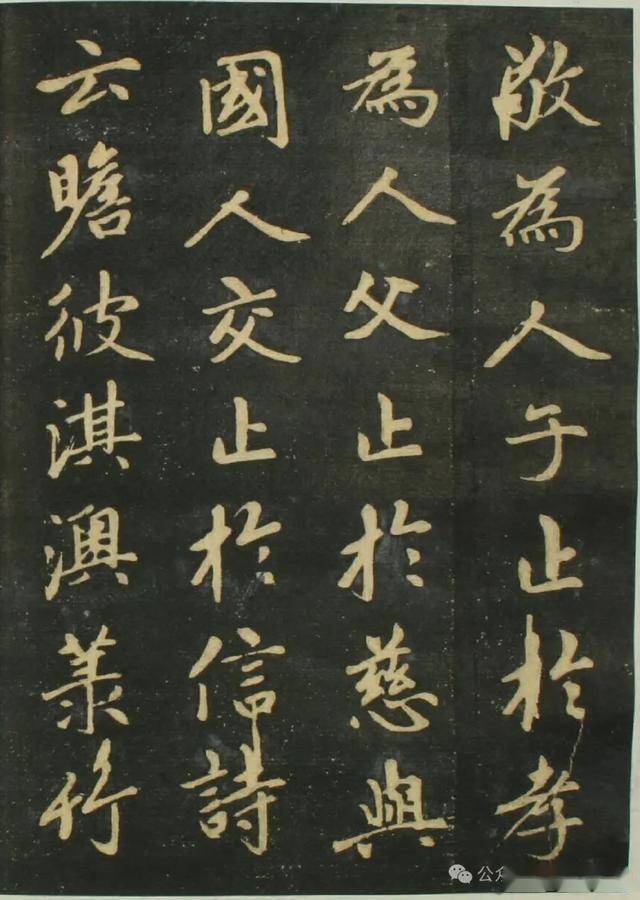 敬為人子止於孝
為人父止於慈與
國人交止於信詩
云瞻彼淇澳菉竹
公众